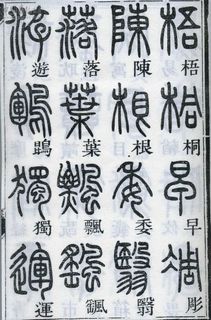 梧桐早彫
陳根委翳
落葉飄颻
遊鵾獨運